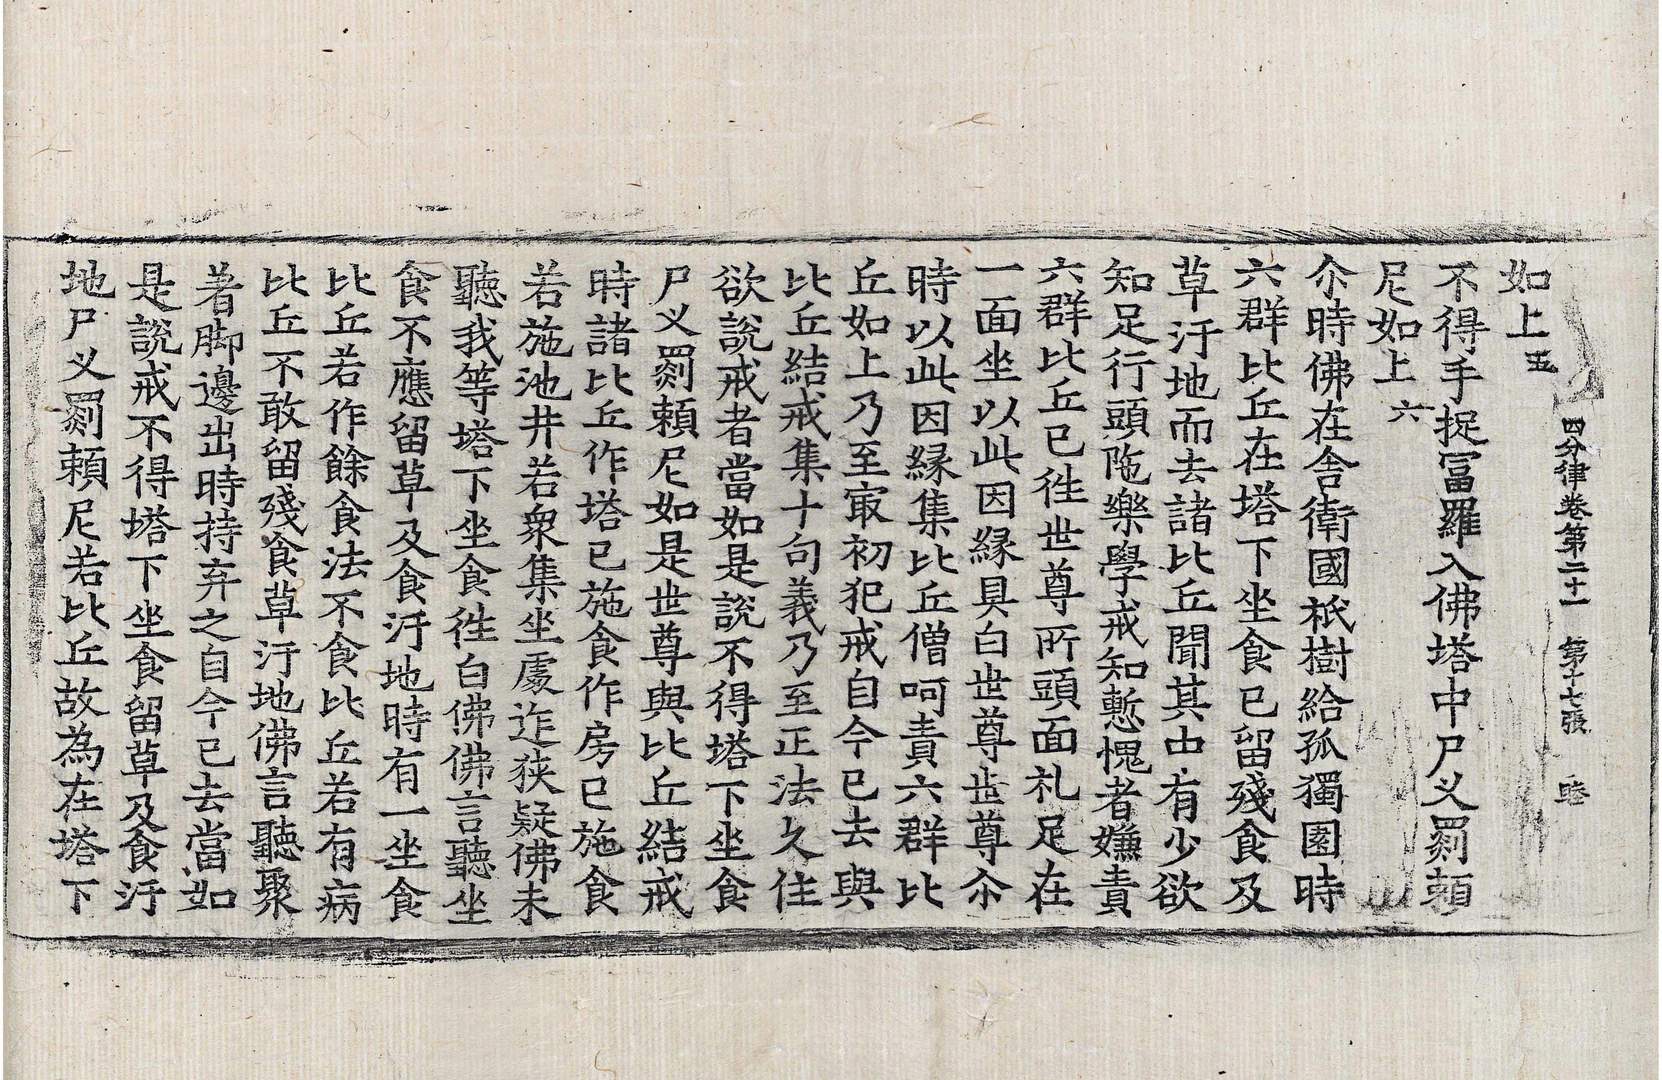 如上五
四分律卷第二十一 第十七張 睦
不得手捉冨羅入佛塔中尸叉罽頼
尼如上六
尒時佛在舍衛國祇樹給孤獨園時
六群比丘在塔下坐食已留殘食及
草汙地而去諸比丘聞其中有少欲
知足行頭陁樂學戒知慙愧者嫌責
六群比丘已徃世尊所頭面礼足在
一面坐以此因緣具白世尊世尊尒
時以此因緣集比丘僧呵責六群比
丘如上乃至冣初犯戒自今已去與
比丘結戒集十句義乃至正法久住
欲說戒者當如是說不得塔下坐食
尸叉罽頼尼如是世尊與比丘結戒
時諸比丘作塔已施食作房已施食
若施池井若衆集坐處迮狹疑佛未
聽我等塔下坐食徃白佛佛言聽坐
食不應留草及食汙地時有一坐食
比丘若作餘食法不食比丘若有病
比丘不敢留殘食草汙地佛言聽聚
著脚邊出時持弃之自今已去當如
是說戒不得塔下坐食留草及食汙
地尸叉罽頼尼若比丘故為在塔下